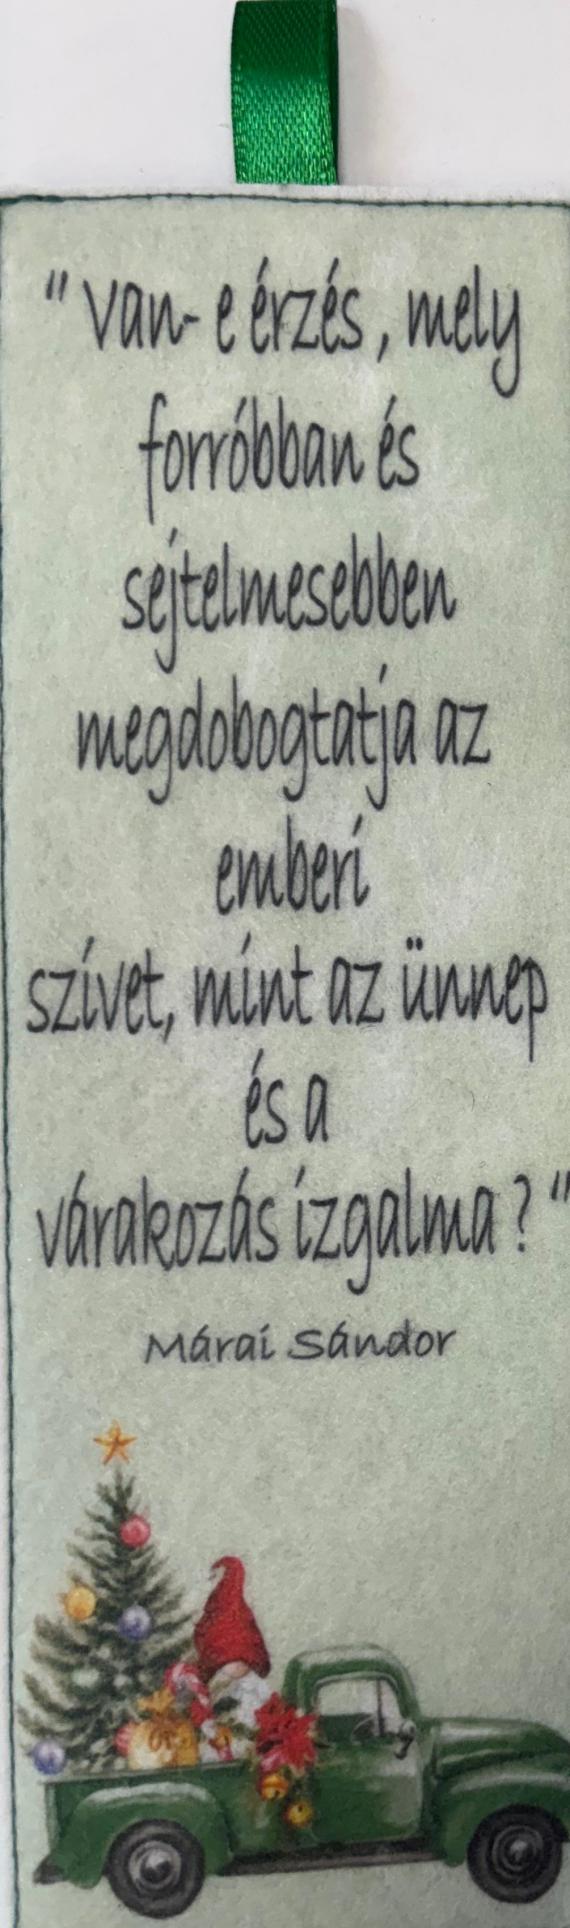 " Van- e érzés , mely
forróbban és
sejtelmesebben
megdobogtatja az
emberi
szívet, mint az ünnep
és a
várakozás izgalma ? "
Márai Sándor